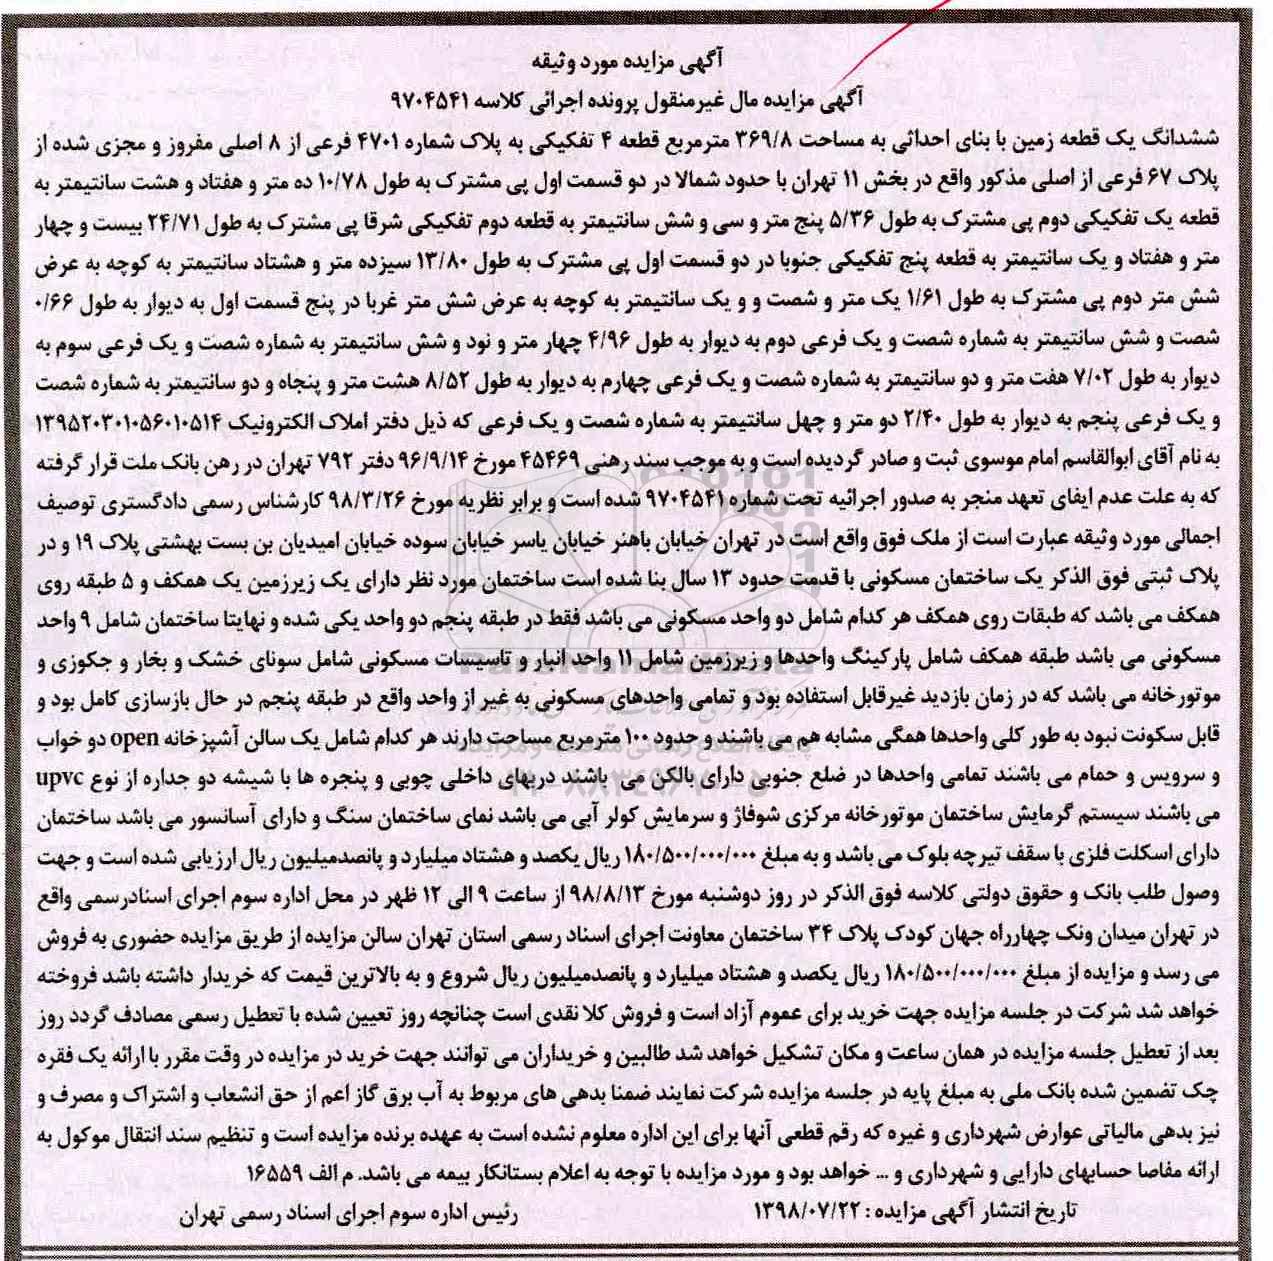 آگهی مزایده مورد وثیقه
آگهی مزایده مال غیرمنقول پرونده اجرائی کلاسه ۹۷۰۴۵۴۱
ششدانگ یک قطعه زمین با بنای احداثی به مساحت ۳۶۹/۸ مترمربع قطعه ۴ تفکیکی به پلاک شماره ۴۷۰۱ فرعی از ۸ اصلی مفروز و مجزی شده از
پلاک ۶۷ فرعی از اصلی مذکور واقع در بخش ۱۱ تهران با حدود شمالا در دو قسمت اول پی مشترک به طول ۱۰/۷۸ ده متر و هفتاد و هشت سانتیمتر به
قطعه یک تفکیکی دوم پی مشترک به طول ۵/۳۶ پنج متر و سی و شش سانتیمتر به قطعه دوم تفکیکی شرقا پی مشترک به طول ۲۴/۷۱ بیست و چهار
متر و هفتاد و یک سانتیمتر به قطعه پنج تفکیکی جنوبا در دو قسمت اول پی مشترک به طول ۱۳/۸۰ سیزده متر و هشتاد سانتیمتر به کوچه به عرض
شش متر دوم پی مشترک به طول ۱/۶۱ یک متر و شصت و و یک سانتیمتر به کوچه به عرض شش متر غربا در پنج قسمت اول به دیوار به طول ۰/۶۶
شصت و شش سانتیمتر به شماره شصت و یک فرعی دوم به دیوار به طول ۴/۹۶ چهار متر و نود و شش سانتیمتر به شماره شصت و یک فرعی سوم به
دیوار به طول ۷/۰۲ هفت متر و دو سانتیمتر به شماره شصت و یک فرعی چهارم به دیوار به طول ۸/۵۲ هشت متر و پنجاه و دو سانتیمتر به شماره شصت
و یک فرعی پنجم به دیوار به طول ۲/۴۰ دو متر و چهل سانتیمتر به شماره شصت و یک فرعی که ذیل دفتر املاک الکترونیک ۱۳۹۵۲۰۳۰۱۰۵۶۰۱۰۵۱۴
به نام آقای ابوالقاسم امام موسوی ثبت و صادر گردیده است و به موجب سند رهنی ۴۵۴۶۹ مورخ ۹۶/۹/۱۴ دفتر ۷۹۲ تهران در رهن بانک ملت قرار گرفته
که به علت عدم ایفای تعهد منجر به صدور اجرائیه تحت شماره ۹۷۰۴۵۴۱ شده است و برابر نظریه مورخ ۹۸/۳/۲۶ کارشناس رسمی دادگستری توصیف
اجمالی مورد وثیقه عبارت است از ملک فوق واقع است در تهران خیابان باهنر خیابان یاسر خیابان سوده خیابان امیدیان بن بست بهشتی پلاک ۱۹ و در
پلاک ثبتی فوق الذکر یک ساختمان مسکونی با قدمت حدود ۱۳ سال بنا شده است ساختمان مورد نظر دارای یک زیرزمین یک همکف و ۵ طبقه روی
همکف می باشد که طبقات روی همکف هر کدام شامل دو واحد مسکونی می باشد فقط در طبقه پنجم دو واحد یکی شده و نهایتا ساختمان شامل ۹ واحد
مسکونی می باشد طبقه همکف شامل پارکینگ واحدها و زیرزمین شامل ۱۱ واحد انبار و تاسیسات مسکونی شامل سونای خشک و بخار و جکوزی و
موتورخانه می باشد که در زمان بازدید غیرقابل استفاده بود و تمامی واحدهای مسکونی به غیر از واحد واقع در طبقه پنجم در حال بازسازی کامل بود و
قابل سکونت نبود به طور کلی واحدها همگی مشابه هم می باشند و حدود ۱۰۰ مترمربع مساحت دارند هر کدام شامل یک سالن آشپزخانه open دو خواب
و سرویس و حمام می باشند تمامی واحدها در ضلع جنوبی دارای بالکن می باشند دربهای داخلی چوبی و پنجره ها با شیشه دو جداره از نوع upvc
می باشند سیستم گرمایش ساختمان موتورخانه مرکزی شوفاژ و سرمایش کولر آبی می باشد نمای ساختمان سنگ و دارای آسانسور می باشد ساختمان
دارای اسکلت فلزی با سقف تیرچه بلوک می باشد و به مبلغ ۱۸۰/۵۰۰/۰۰۰/۰۰۰ ریال یکصد و هشتاد میلیارد و پانصدمیلیون ریال ارزیابی شده است و جهت
وصول طلب بانک و حقوق دولتی کلاسه فوق الذکر در روز دوشنبه مورخ ۹۸/۸/۱۳ از ساعت ۹ الی ۱۲ ظهر در محل اداره سوم اجرای اسنادرسمی واقع
در تهران میدان ونک چهارراه جهان کودک پلاک ۳۴ ساختمان معاونت اجرای اسناد رسمی استان تهران سالن مزایده از طریق مزایده حضوری به فروش
می رسد و مزایده از مبلغ ۱۸۰/۵۰۰/۰۰۰/۰۰۰ ریال یکصد و هشتاد میلیارد و پانصدمیلیون ریال شروع و به بالاترین قیمت که خریدار داشته باشد فروخته
خواهد شد شرکت در جلسه مزایده جهت خرید برای عموم آزاد است و فروش کلا نقدی است چنانچه روز تعیین شده با تعطیل رسمی مصادف گردد روز
بعد از تعطیل جلسه مزایده در همان ساعت و مکان تشکیل خواهد شد طالبین و خریداران می توانند جهت خرید در مزایده در وقت مقرر با ارائه یک فقره
چک تضمین شده بانک ملی به مبلغ پایه در جلسه مزایده شرکت نمایند ضمنا بدهی های مربوط به آب برق گاز اعم از حق انشعاب و اشتراک و مصرف و
نیز بدهی مالیاتی عوارض شهرداری و غیره که رقم قطعی آنها برای این اداره معلوم نشده است به عهده برنده مزایده است و تنظیم سند انتقال موکول به
ارائه مفاصا حسابهای دارایی و شهرداری و ... خواهد بود و مورد مزایده با توجه به اعلام بستانکار بیمه می باشد. م الف ۱۶۵۵۹
تاریخ انتشار آگهی مزایده : ۱۳۹۸/۰۷/۲۲
رئیس اداره سوم اجرای اسناد رسمی تهران
ParsNamadData